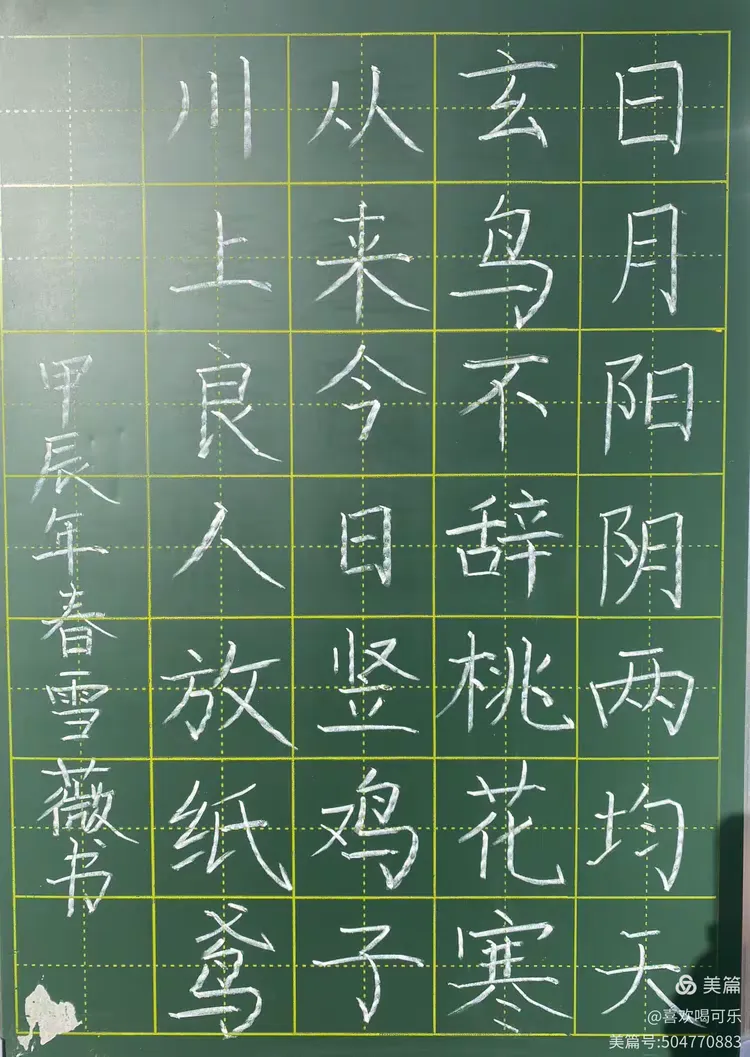 日月阳阴两均天
玄鸟不辞桃花寒
从来今日竖鸡子
川上良人放纸鸢
甲辰年春雪薇书
美篇
@喜欢喝可乐
美篇号:504770883